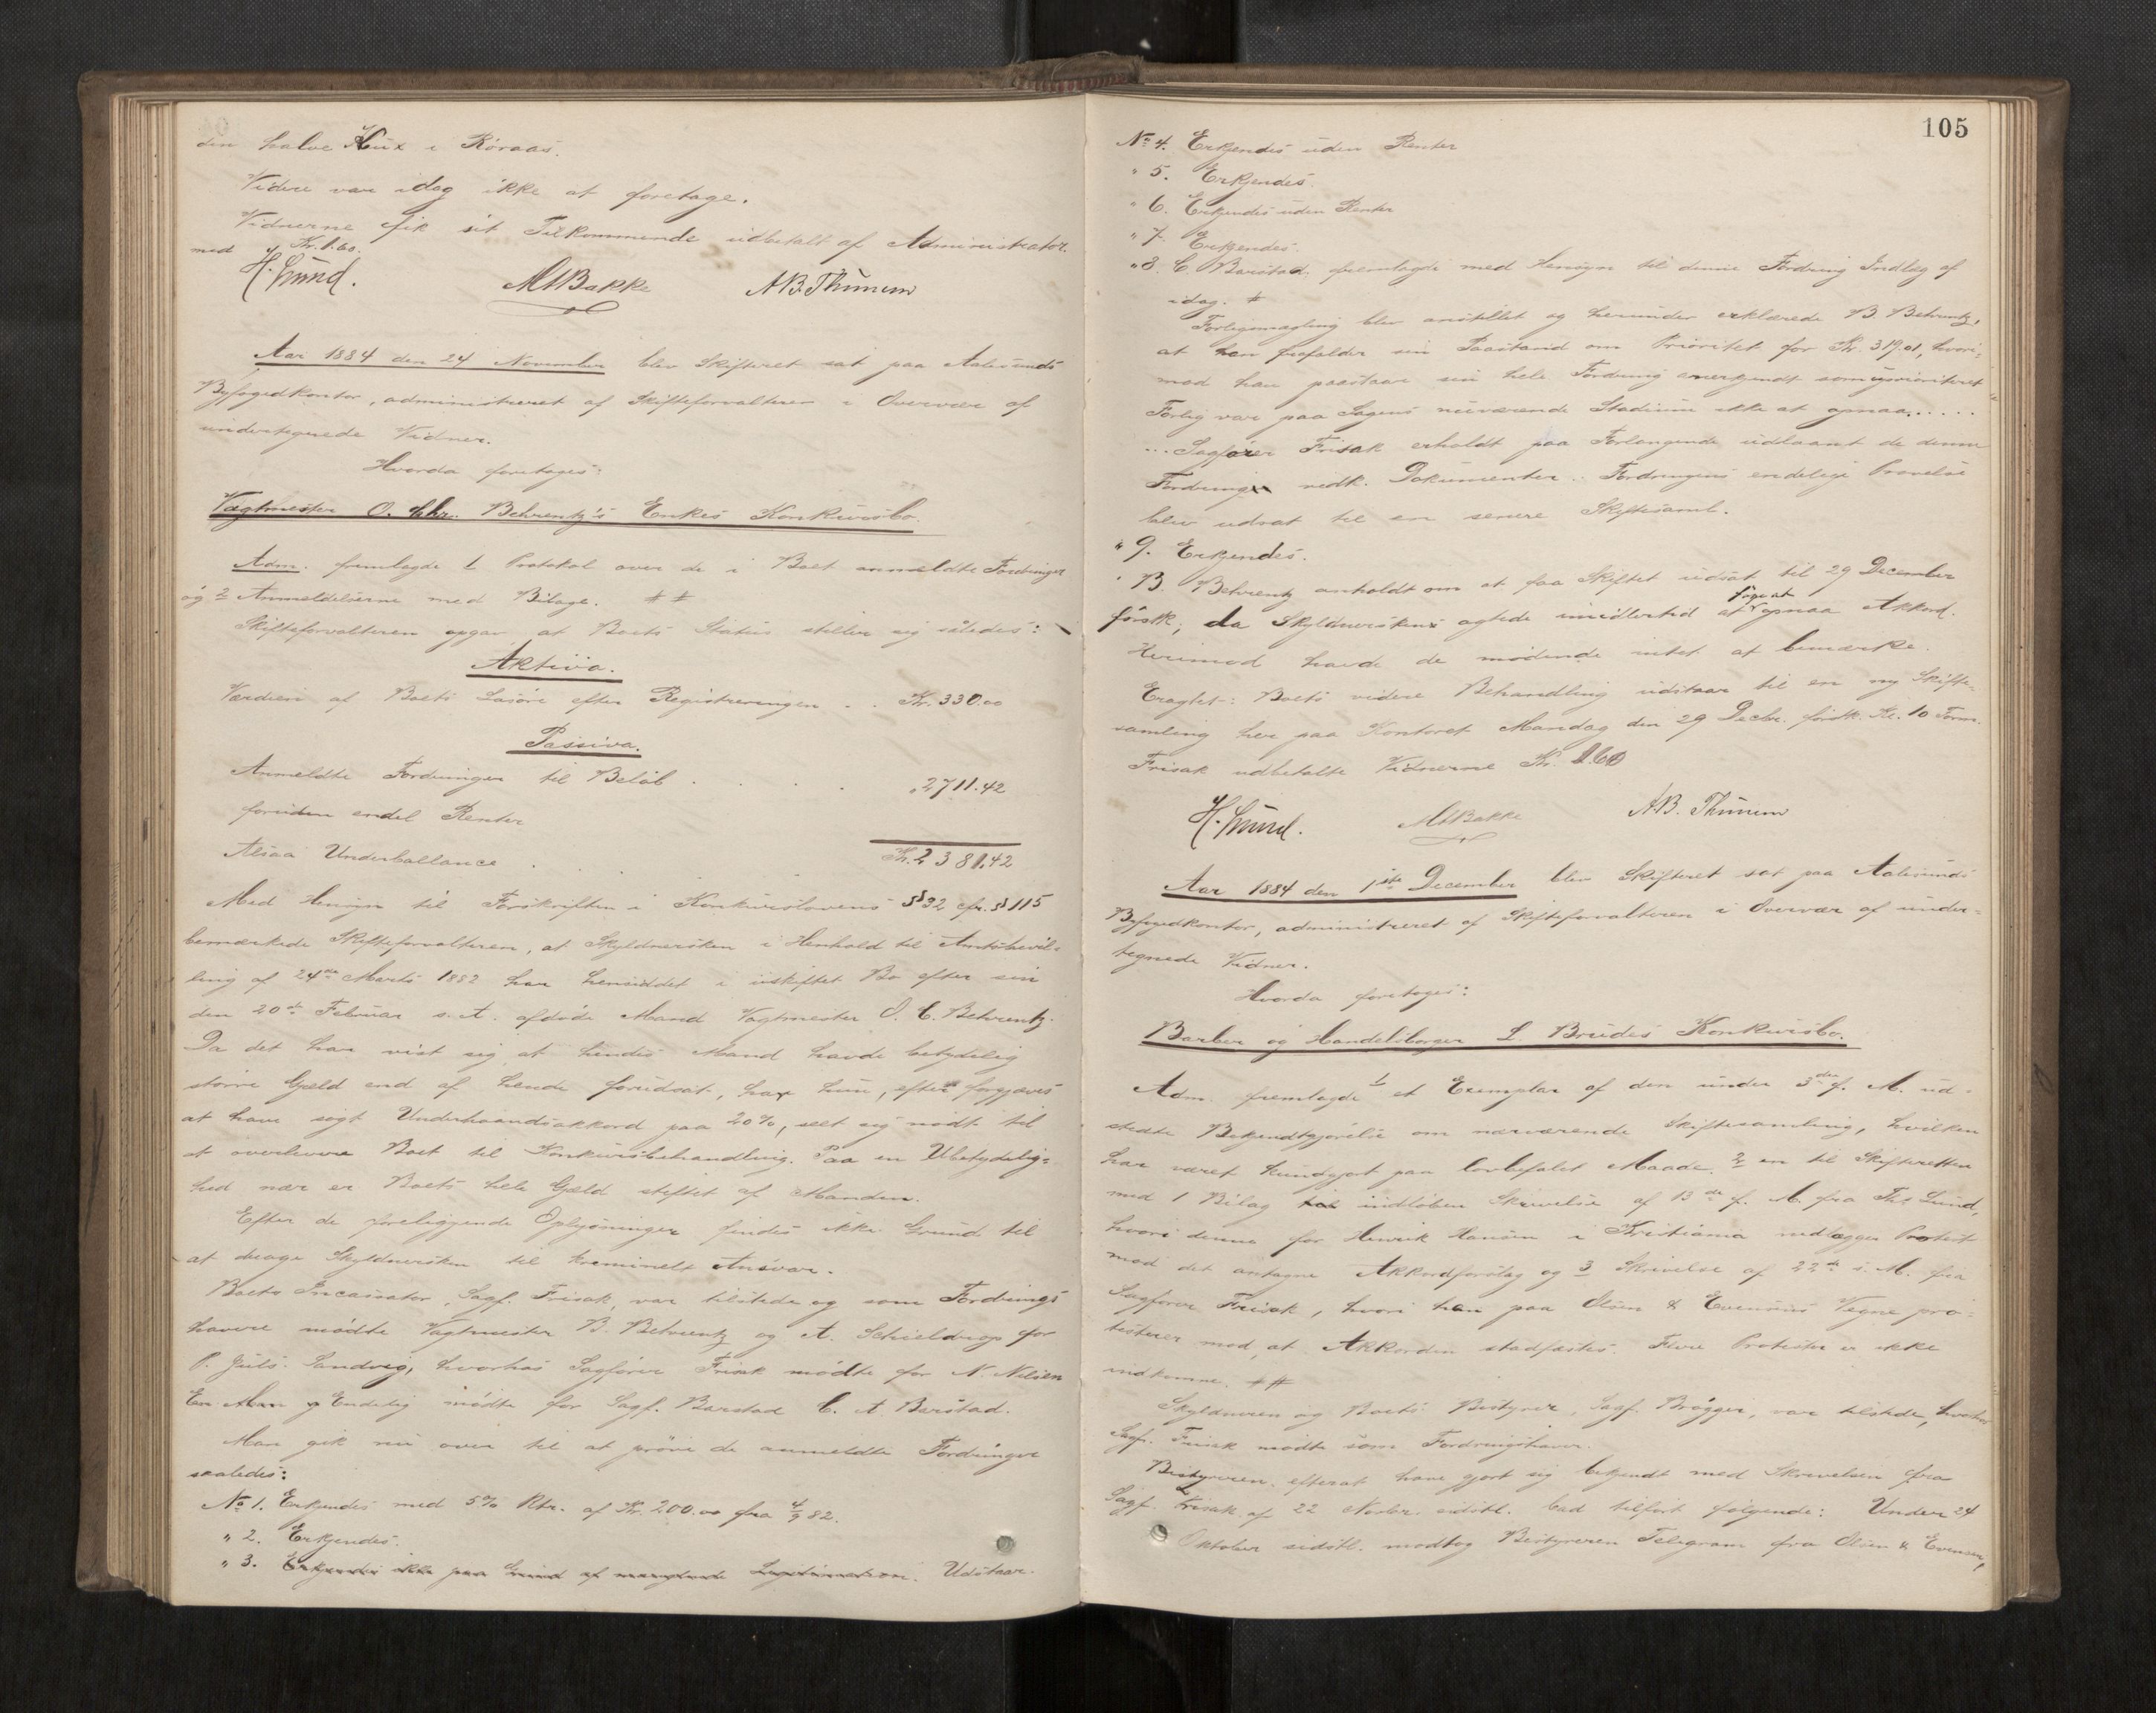 den halve Hux i Røraas.
Videre var idag ikke at foretage.
Vidnerne fik sit Tilkommende udbetalt af Administrator.
med Kr. 1.60.
H. Lund. M Bakke A B. Thunem
Aar 1884 den 24 November blev Skifteret sat paa Aalesunds
Byfogedkontor, administreret af Skifteforvalteren i Overvær af
undertegnede Vidner.
Hvorda foretoges:
Vagtmester O. Chr. Behrentz's Enkes Konkursbo.
Adm. fremlagde 1 Protokol over de i Boet anmeldte Fordringer
og 2 Anmeldelserne med Bilage. ##
Skifteforvalteren opgav at Boets Status stiller sig således:
Aktiva.
Værdien af Boets Løsøre efter Registreringen . . Kr. 330.00
Passiva.
Anmeldte Fordringer til Beløb . . . „ 2711.42
foruden endel Renter
Altsaa Underballance . . . Kr. 2381.42
Med Hensyn til Forskriften i Konkurslovens § 32 cfr. § 115
bemærkede Skifteforvalteren, at Skyldnersken i Henhold til Amtsbevil-
ling af 24de Marts 1882 har hensiddet i uskiftet Bo efter sin
den 20de Februar s. A. afdøde Mand Vagtmester O. C. Behrentz.
Da det har vist sig at hendes Mand havde betydelig
større Gjæld end af hende forudsat, har hun, efter forgjæves
at have søgt Underhaandsakkord paa 20%, seet sig nødt til
at overlevere Boet til Konkursbehandling. Paa en Ubetydelig-
hed nær er Boets hele Gjæld stiftet af Manden.
Efter de foreliggende Oplysninger findes ikke Grund til
at drage Skyldnersken til kriminelt Ansvar.
Boets Incassator, Sagf. Frisak, var tilstede og som Fordrings
havere mødte Vagtmester B. Behrentz og A. Schieldrop for
P. Juls. Sandvig, hvorhos Sagfører Frisak mødte for N. Nilsen
Endelig mødte for Sagf. Barstad C. A. Barstad.
Man gik nu over til at prøve de anmeldte Fordringer
saaledes:
No 1. Erkjendes med 5% Rtr. af Kr. 200.00 fra 4/9 82.
" 2. Erkjendes.
" 3. Erkjendes ikke paa Grund af manglende Legitimation. Udstaar.
105
No 4. Erkjendes uden Renter
" 5. Erkjendes.
" 6. Erkjendes uden Renter
" 7. Erkjendes.
" 8. C. Barstad fremlagde med Hensyn til denne Fordring Indlæg af
idag. #
Forligsmægling blev anstillet og herunder erklærede B. Behrentz,
at han frafalder sin Paastand om Prioritet for Kr. 319.01, hvori-
mod han paastaar sin hele Fordring anerkjendt som uprioriteret
Forlig var paa Sagens nuværende Stadium ikke at opnaa.....
... Sagfører Frisak erholdt paa Forlangende udlaant de denne
Fordring vedk. Dokumenter. . Fordringens endelige Prøvelse
blev udsat til en senere Skiftesaml.
" 9. Erkjendes.
B. Behrentz anholdt om at faa Skiftet udsat til 29 December
førstk; da Skyldnersken agtede imidlertid at søge at opnaa Akkord.
Herimod havde de mødende intet at bemærke.
Eragtet: Boets videre Behandling udstaar til en ny Skifte-
samling her paa Kontoret Mandag den 29 Decbr. førstk. Kl. 10 Form.
Frisak udbetalte Vidnerne Kr. 1.60
H. Lund. M Bakke A.B. Thunem
Aar 1884 den 1ste December blev Skifteret sat paa Aalesunds
Byfogedkontor, administreret af Skifteforvalteren i Overvær af under-
tegnede Vidner.
Hvorda foretoges:
Barber og Handelsborger L. Brudes Konkursbo.
Adm. fremlagde 1 et Exemplar af den under 3die f. M. ud-
stedte Bekjendtgjørelse om nærværende Skiftesamling, hvilken
har været kundgjort paa lovbefalet Maade, 2 en til Skifteretten
med 1 Bilag indløben Skrivelse af 13de f. M. fra Ths Lund,
hvori denne for Henrik Hansen i Kristiania nedlægger Protest
mod det antagne Akkordforslag og 3 Skrivelse af 22de s. M. fra
Sagfører Frisak, hvori han paa Olsen & Evensens Vegne pro-
testerer mod, at Akkorden stadfæstes. Flere Protester er ikke
indkomne. ##
Skyldneren og Boets Bestyrer, Sagf. Brøgger, var tilstede, hvorhos
Sagf. Frisak mødte som Fordringshaver.
Bestyreren, efterat have gjort sig bekjendt med Skrivelsen fra
Sagf. Frisak af 22 Novbr. sidstl. bad tilført følgende: Under 24
Oktober sidstl. modtog Bestyreren Telegram fra Olsen & Evensen,